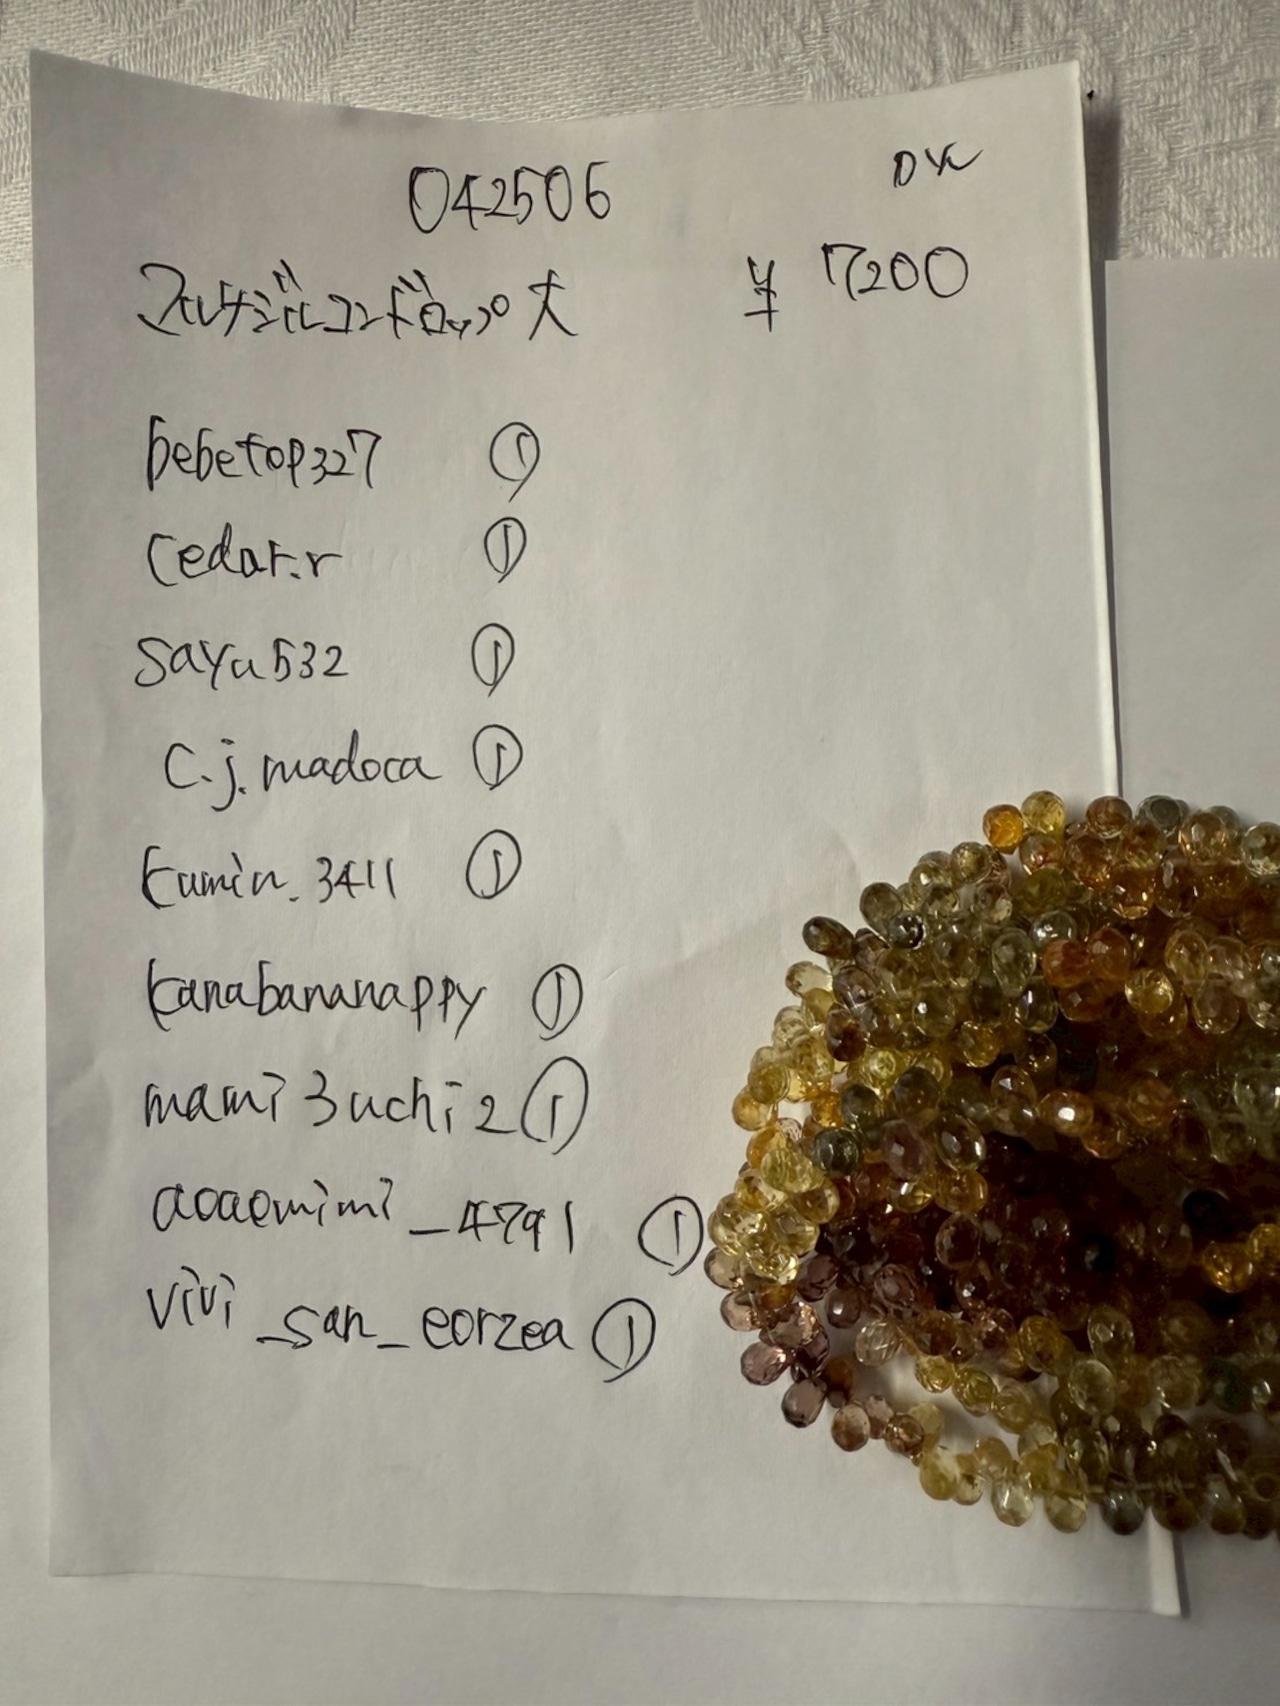 042506
マルチジルコンドロップ大 ¥7200
bebetop327 ①
cedar.r ①
sayu532 ①
c.j.madoca ①
kumin.3411 ①
kanabananappy ①
mami3uchi2 ①
aoaomimi_4791 ①
vivi_san_eorzea ①